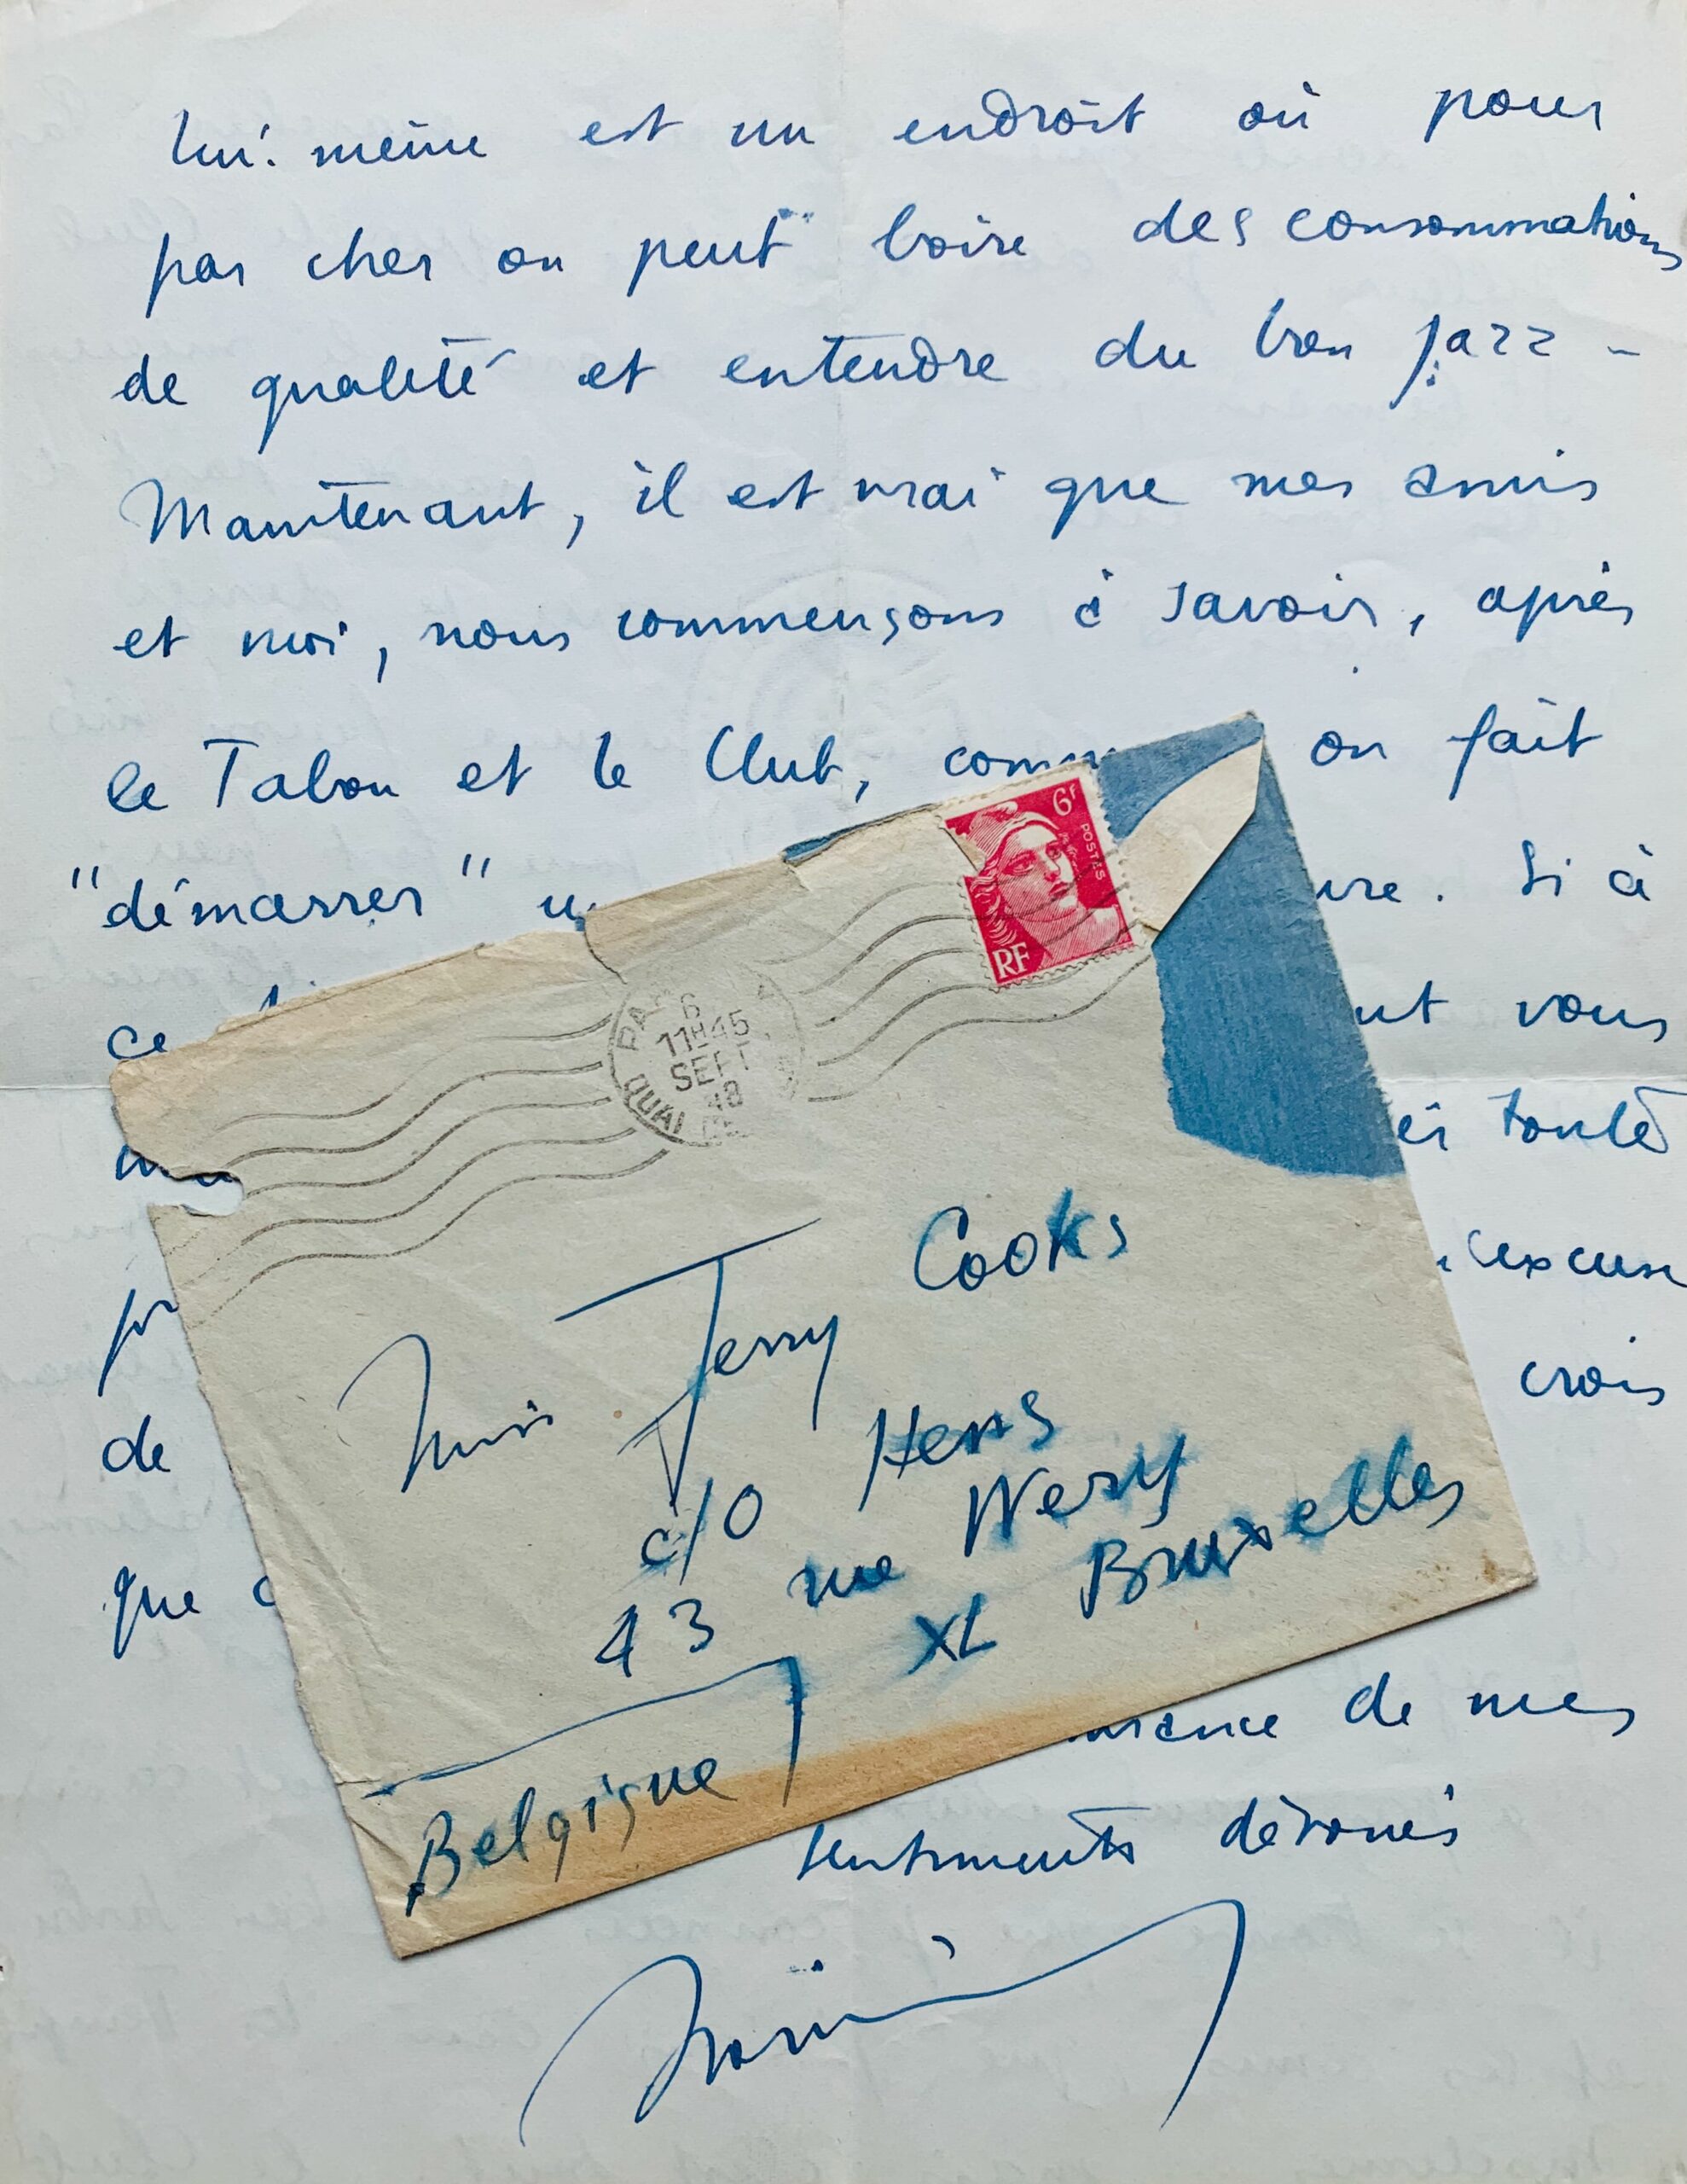 lui-même est un endroit où pour
pas cher on peut boire des consommations
de qualité et entendre du bon jazz -
Maintenant, il est vrai que mes amis
et moi, nous commençons à savoir, après
le Tabou et le Club, comm on fait
"démarrer" ure. Si à
ce ut vous
toute
excuse
de crois
que
de mes
sentiments dévoués
6F
POSTES
RF
6
11H45
SEPT
48
QUAI
Miss Jerry Cooks
c/o Hens
43 rue Wery
XL Bruxelles
Belgique